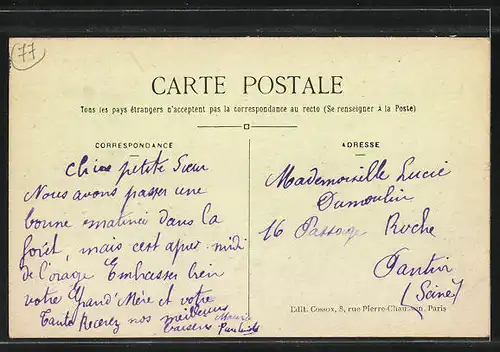 77
CARTE POSTALE
Tous les pays étrangers n'acceptent pas la correspondance au recto (Se renseigner à la Poste)
CORRESPONDANCE
petite Sœur
Nous avons passer une
bonne matinée dans la
forêt, mais cert apres midi
de l'orage Embrasser bien
votre Grand'Mère et votre
Tante Recevez nos meilleurs
baisers
ADRESSE
Mademoiselle Lucie
Dumoulin
16 Passage Roche
Pantin
(Seine)
Edit. Cossox, 8, rue Pierre-Chausson, Paris